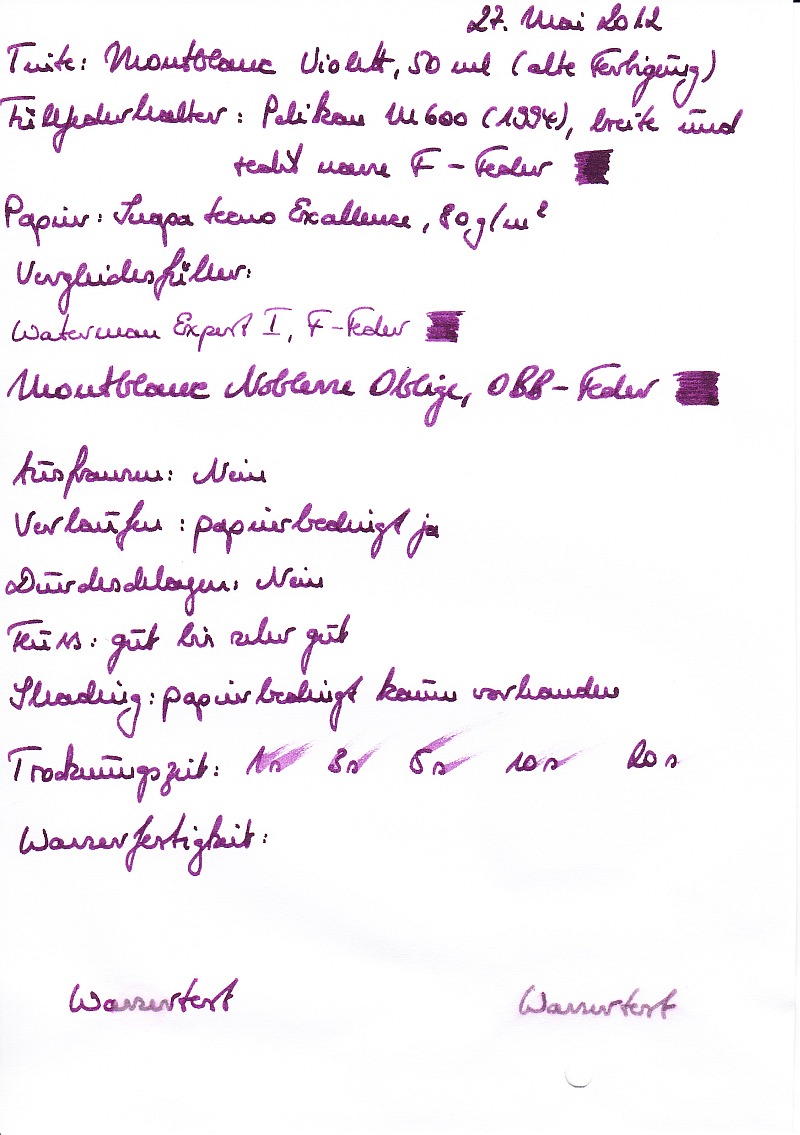 27. Mai 2012
Tinte: Montblanc Violett, 50 ml (alte Fertigung)
Füllfederhalter: Pelikan M600 (1994), breite und
recht nasse F-Feder
Papier: Inapa tecno Excellence, 80 g/m²
Vergleichsfüller:
Waterman Expert I, F-Feder
Montblanc Noblesse Oblige, OBB-Feder
Ausfransen: Nein
Verlaufen: papierbedingt ja
Durchschlagen: Nein
Fluss: gut bis sehr gut
Shading: papierbedingt kaum vorhanden
Trocknungszeit: 1s 3s 5s 10s 20s
Wasserfestigkeit:
Wassertest Wassertest